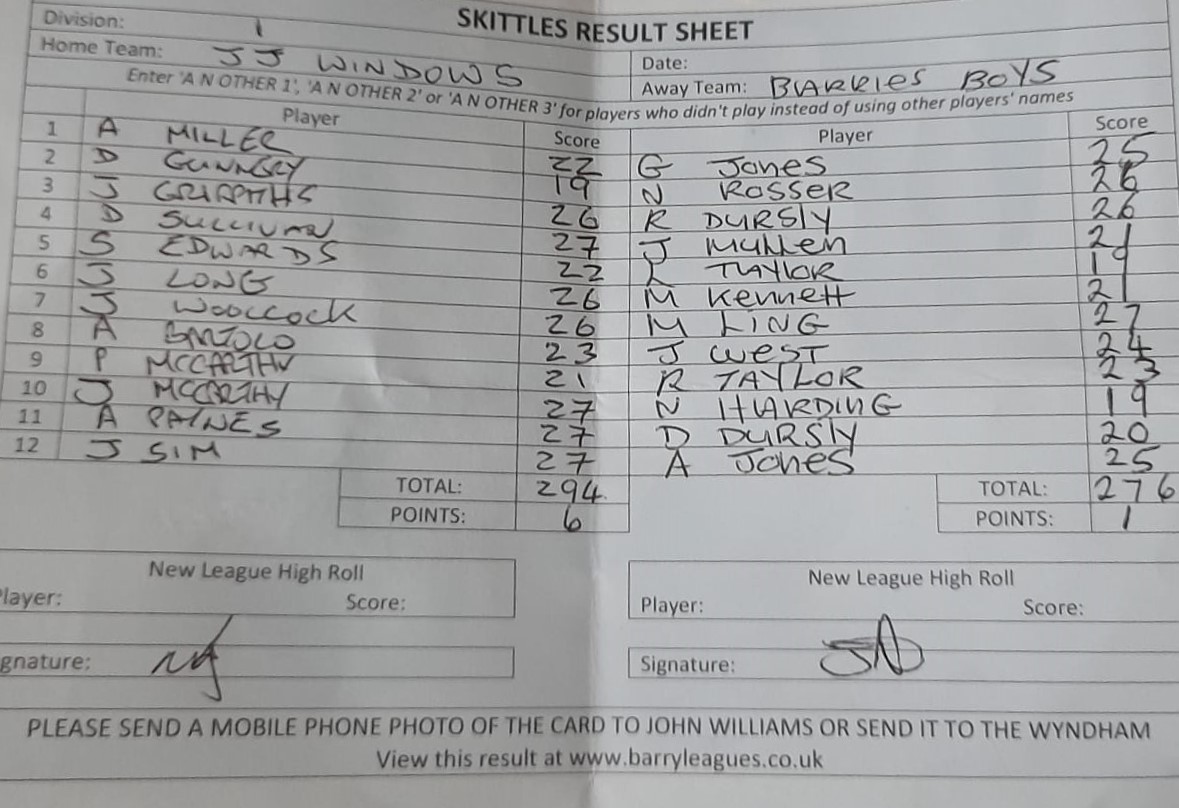 SKITTLES RESULT SHEET
Division: 1
Home Team: JJ WINDOWS Date:
Away Team: BARRIES BOYS
Enter 'A N OTHER 1', 'A N OTHER 2' or 'A N OTHER 3' for players who didn't play instead of using other players' names
Player Score Player Score
1 A MILLER 22 G Jones 25
2 D 19 N ROSSER 26
3 J GRIFFITHS 26 R DURSLY 26
4 D SULLIVAN 27 J Mullen 21
5 S EDWARDS 22 L TAYLOR 19
6 J LONG 26 M Kennett 21
7 J WOOLCOCK 26 M LING 27
8 A BARTOLO 23 J WEST 24
9 P MCCARTHY 21 R TAYLOR 23
10 J MCCARTHY 27 N HARDING 19
11 A PAYNES 27 D DURSLY 20
12 J SIM 27 A Jones 25
TOTAL: 294 TOTAL: 276
POINTS: 6 POINTS: 1
New League High Roll New League High Roll
layer: Score: Player: Score:
gnature: Signature:
PLEASE SEND A MOBILE PHONE PHOTO OF THE CARD TO JOHN WILLIAMS OR SEND IT TO THE WYNDHAM
View this result at www.barryleagues.co.uk